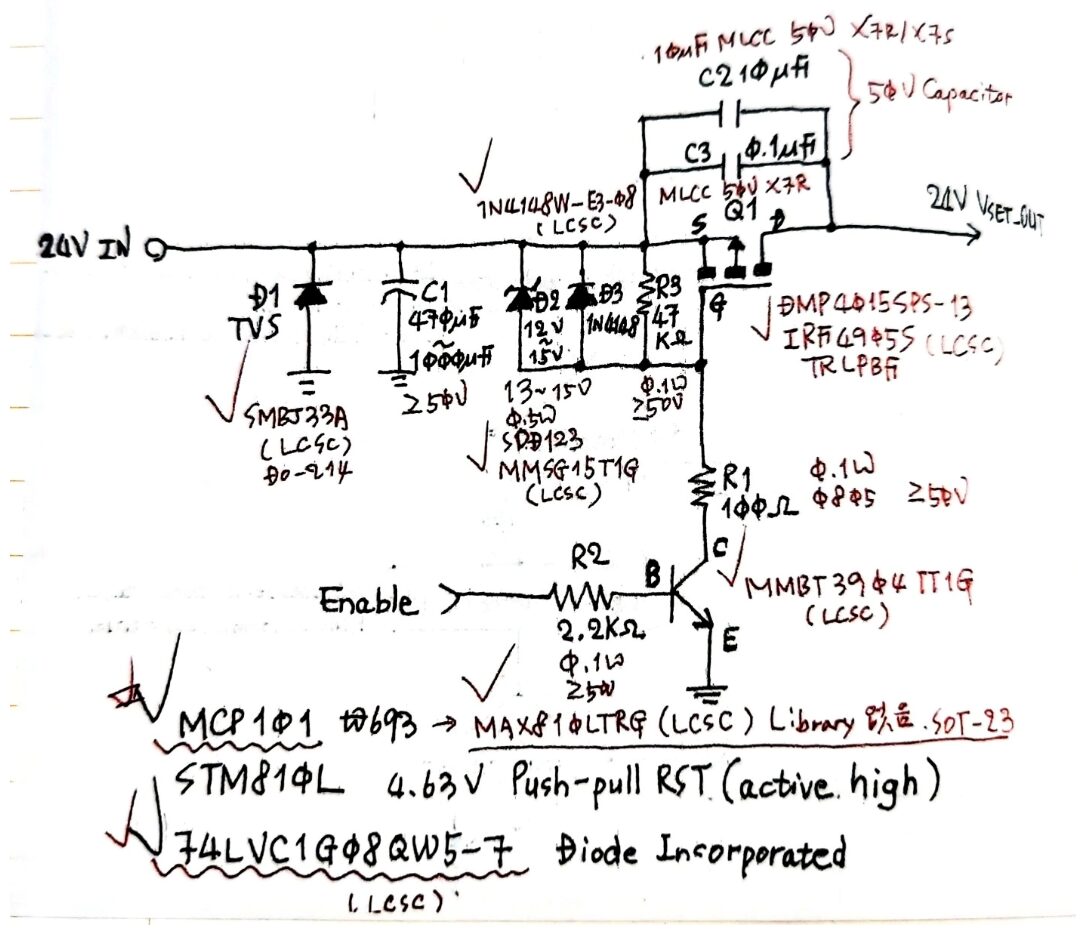 10μF MLCC 50V X7R/X7S
C2 10μF
50V Capacitor
C3 0.1μF
MLCC 50V X7R
1N4148W-E3-08
(LCSC)
Q1
S
D
G
24V VSET_OUT
24V IN
D1
TVS
C1
470μF
~
1000μF
≥50V
D2
12V
~
15V
D3
1N4148
R3
47
KΩ
0.1W
≥50V
DMP4015SPS-13
IRF4905S (LCSC)
TRLPBF
SMBJ33A
(LCSC)
DO-214
13~15V
0.5W
SOD123
MMSG15T1G
(LCSC)
R1
100Ω
0.1W
0805 ≥50V
C
B
E
MMBT3904TT1G
(LCSC)
R2
Enable
2.2KΩ
0.1W
≥50V
MCP101 → MAX810LTRG (LCSC) Library 있음. SOT-23
STM810L 4.63V Push-pull RST. (active. high)
74LVC1G08QW5-7 Diode Incorporated
(LCSC)